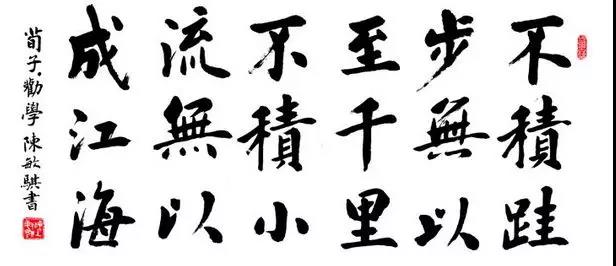 不積跬
步無以
至千里
不積小
流無以
成江海
荀子·勸學 陳敏騏書